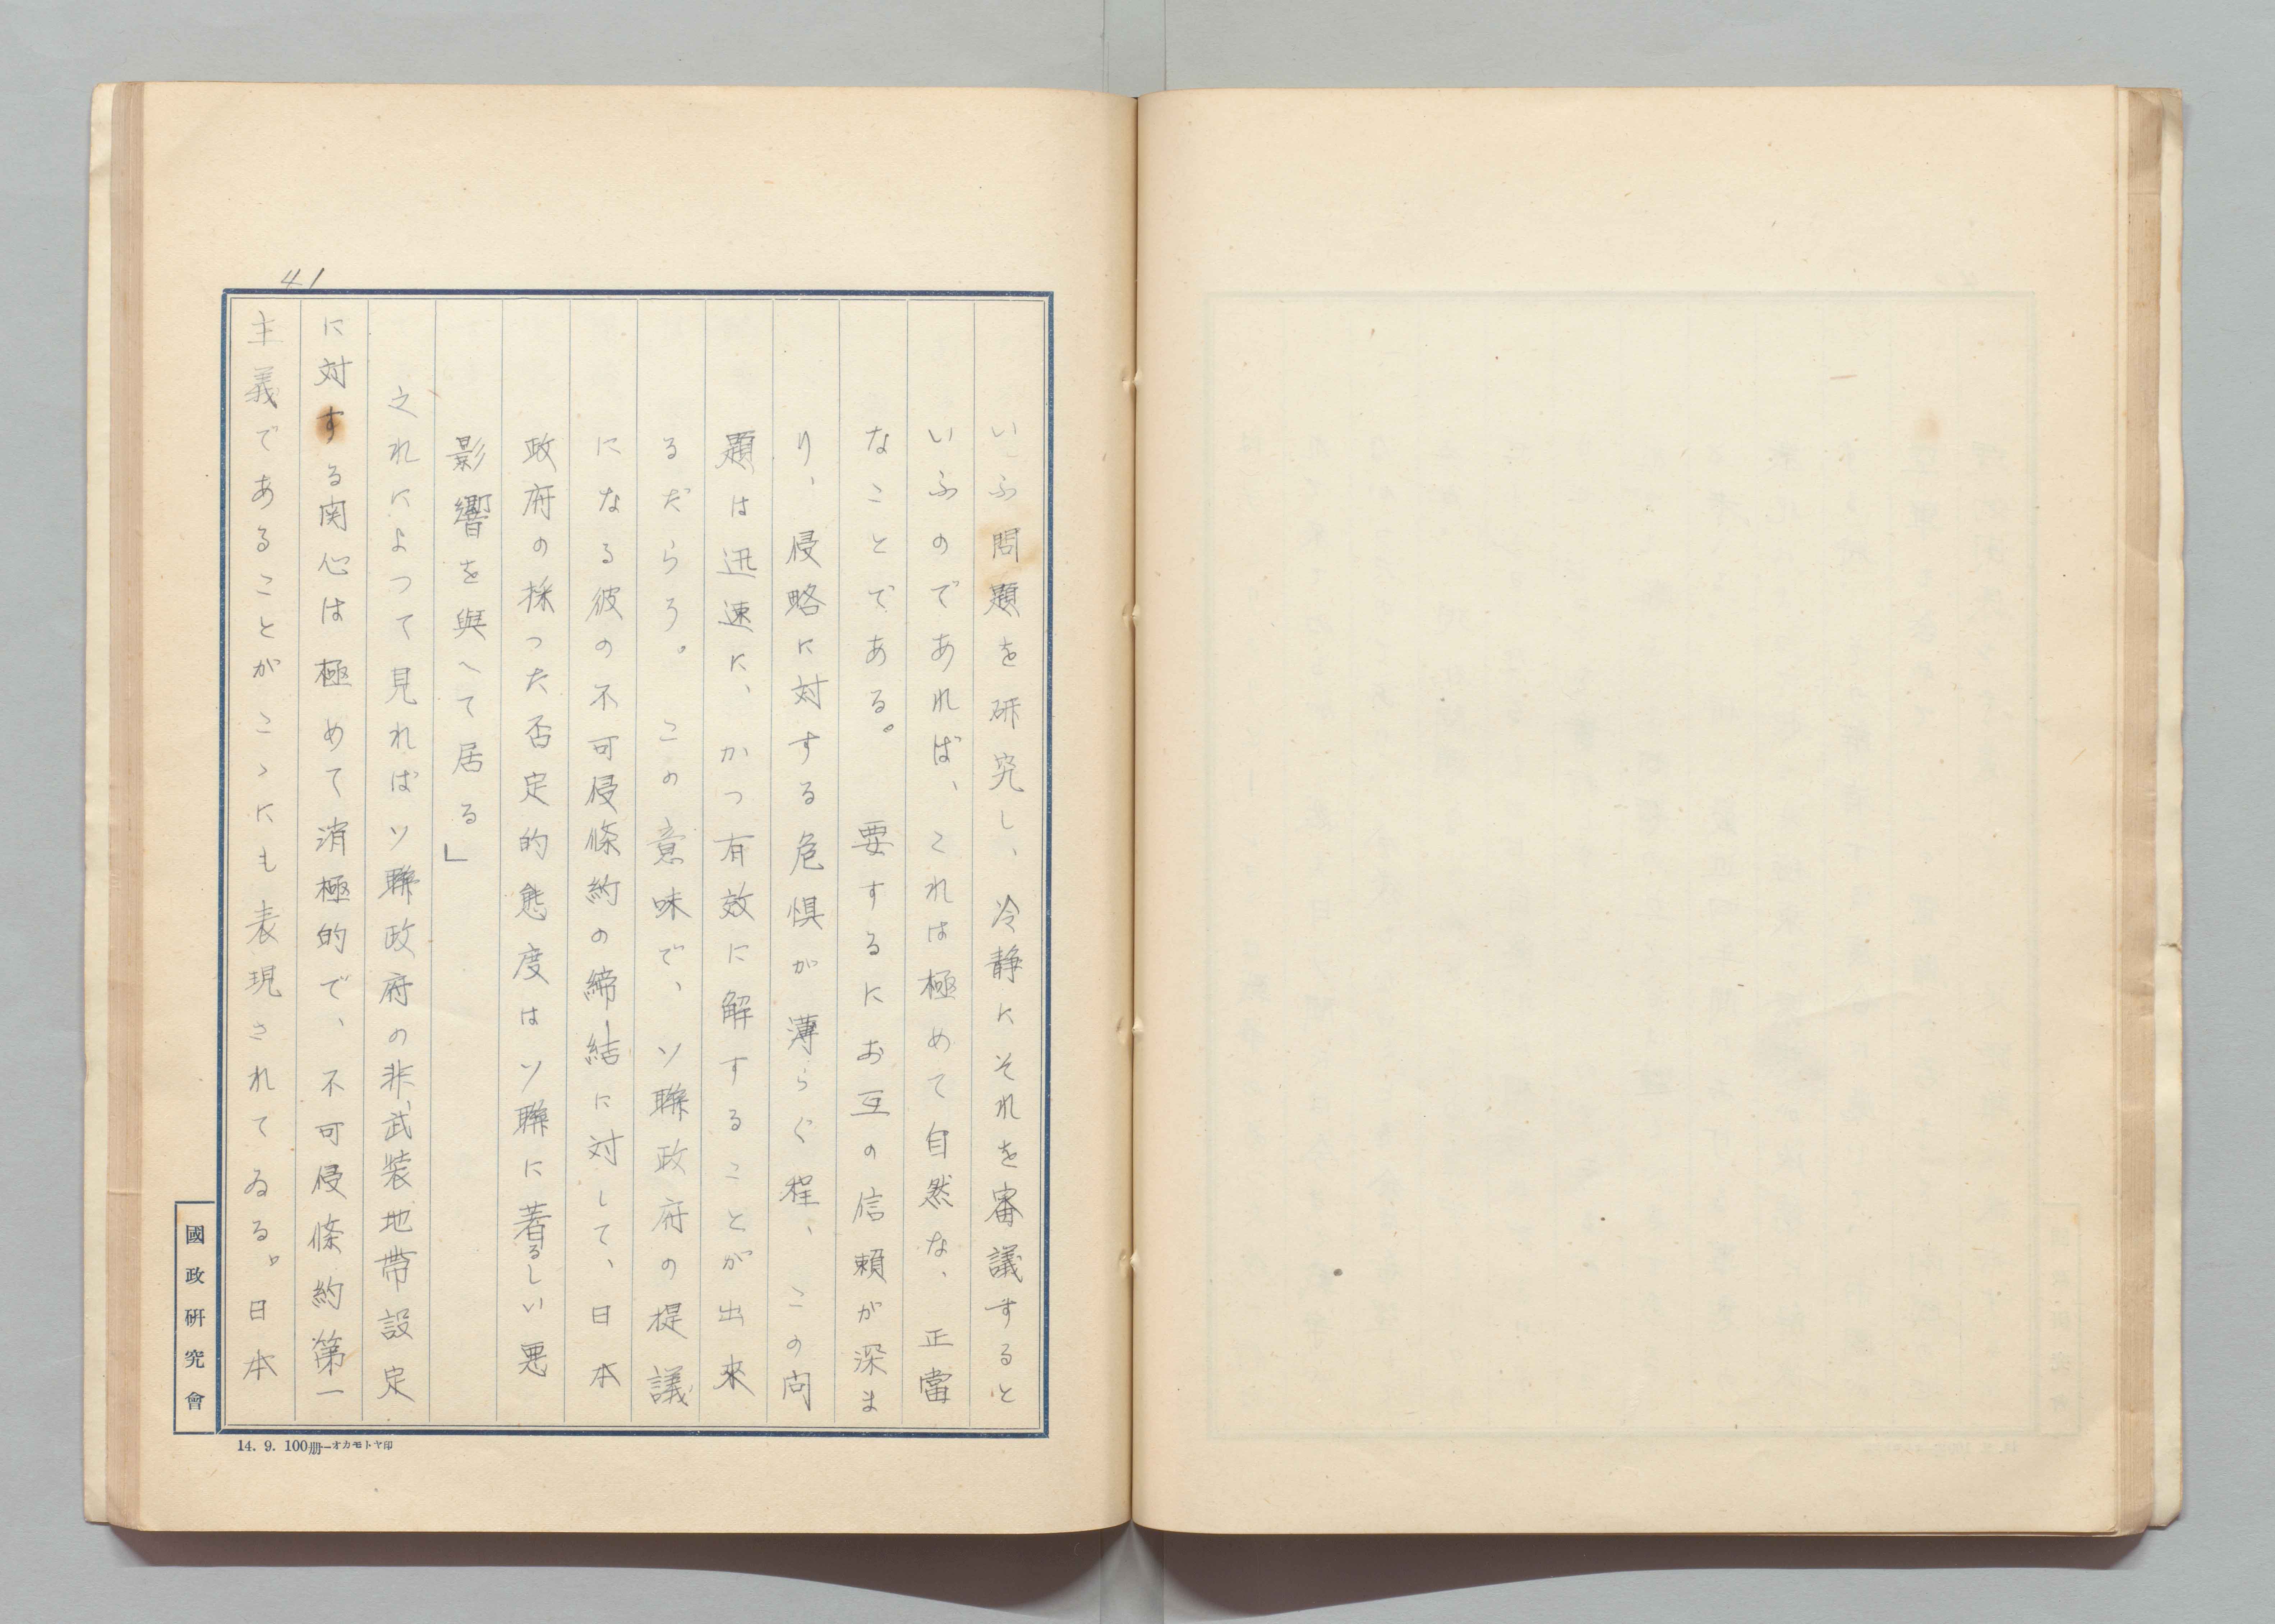 41
いふ問題を研究し、冷静にそれを審議すると
いふのであれば、これは極めて自然な、正當
なことである。要するにお互の信頼が深ま
り、侵略に対する危惧が薄らぐ程、この問
題は迅速に、かつ有效に解することが出来
るだらう。この意味で、ソ聯政府の提議
になる彼の不可侵條約の締結に対して、日本
政府の採つた否定的態度はソ聯に著るしい悪
影響を與へて居る」
之れによつて見ればソ聯政府の非武装地帯設定
に対する関心は極めて消極的で、不可侵條約第一
主義であることがこゝにも表現されてゐる。日本
國政研究會
14. 9. 100册—オカモトヤ印